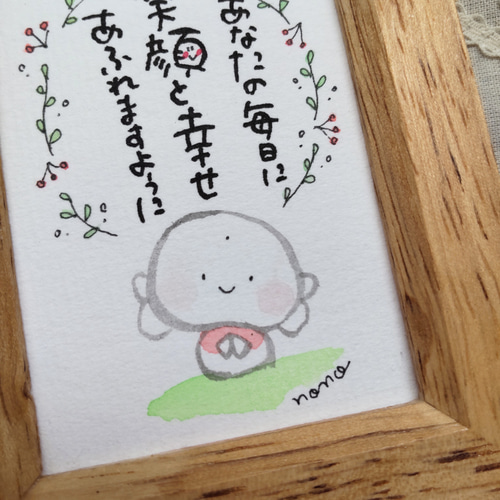 あなたの毎日に
笑顔と幸せ
あふれますように
nono